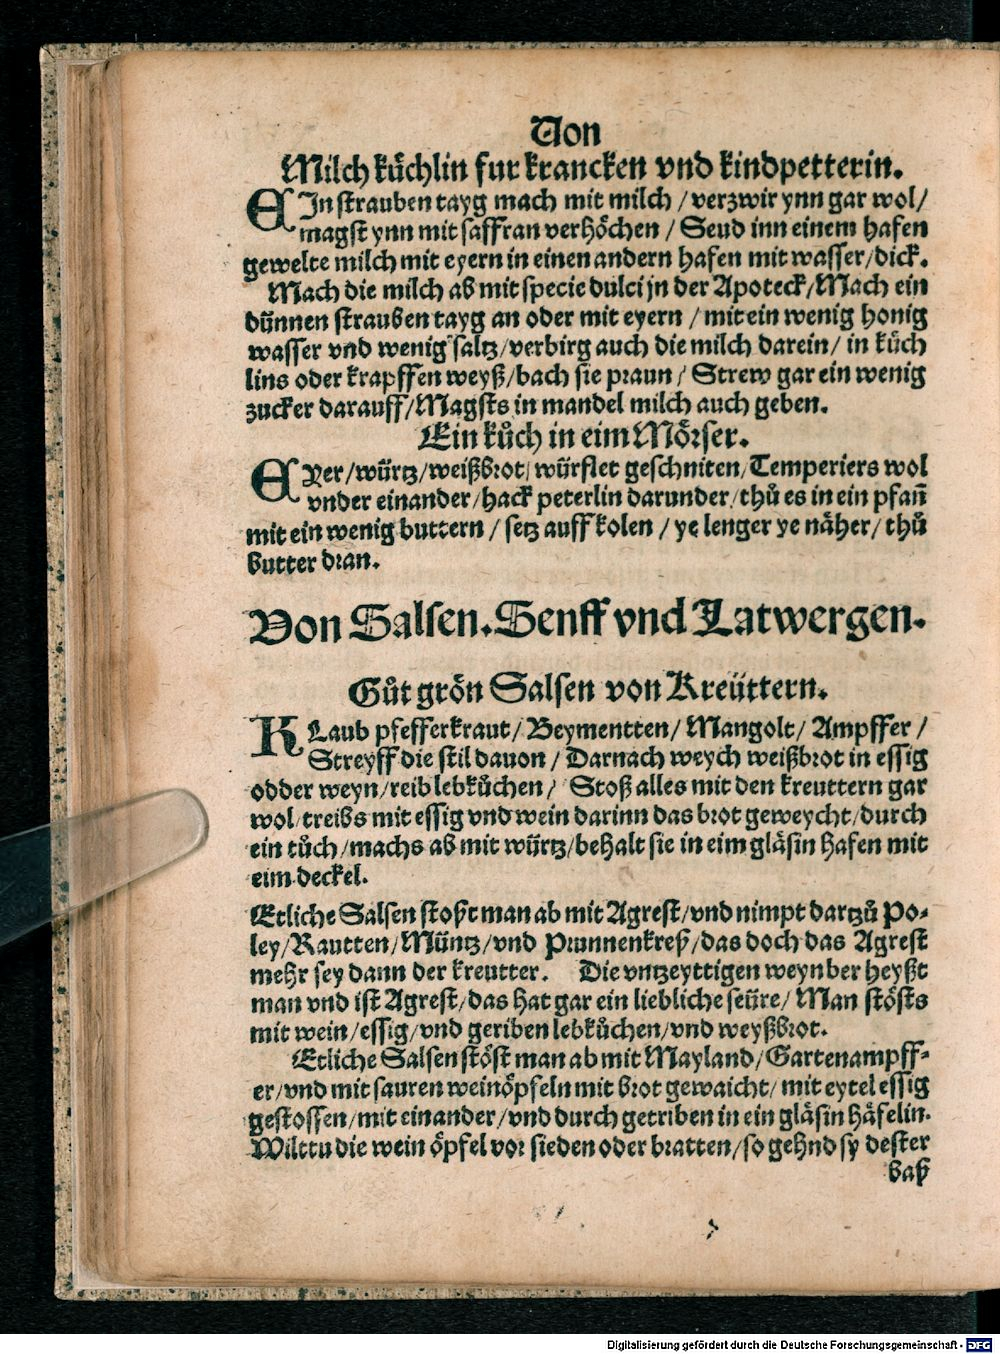 Von
Milch kuͤchlin fur krancken vnd kindpetterin.
EIn strauben tayg mach mit milch / verzwir ynn gar wol /
magst ynn mit saffran verhoͤchen / Seud inn einem hafen
gewelte milch mit eyern in einen andern hafen mit wasser / dick.
Mach die milch ab mit specie dulci jn der Apoteck / Mach ein
duͤnnen strauben tayg an oder mit eyern / mit ein wenig honig
wasser vnd wenig saltz / verbirg auch die milch darein / in kuͤch
lins oder krapffen weyß / bach sie praun / Strew gar ein wenig
zucker darauff / Magsts in mandel milch auch geben.
Ein kuͦch in eim Moͤrser.
EYer / wuͤrtz / weißbrot / wuͤrflet geschniten / Temperiers wol
vnder einander / hack peterlin darunder / thuͦ es in ein pfañ
mit ein wenig buttern / setz auff kolen / ye lenger ye naͤher / thuͦ
butter dran.
Von Salsen. Senff vnd Latwergen.
Guͦt groͤn Salsen von Kreuͤttern.
KLaub pfefferkraut / Beymentten / Mangolt / Ampffer /
Streyff die stil dauon / Darnach weych weißbrot in essig
odder weyn / reib lebkuͦchen / Stoß alles mit den kreuttern gar
wol / treibs mit essig vnd wein darinn das brot geweycht / durch
ein tuͦch / machs ab mit wuͤrtz / behalt sie in eim glaͤsin hafen mit
eim deckel.
Etliche Salsen stoßt man ab mit Agrest / vnd nimpt dartzuͦ Po-
ley / Rautten / Muͤntz / vnd Prunnenkreß / das doch das Agrest
mehr sey dann der kreutter. Die vntzeyttigen weynber heyßt
man vnd ist Agrest / das hat gar ein liebliche seuͤre / Man stoͤsts
mit wein / essig / vnd geriben lebkuͦchen / vnd weyßbrot.
Etliche Salsen stoͤst man ab mit Mayland / Gartenampff-
er / vnd mit sauren weinoͤpfeln mit brot gewaicht / mit eytel essig
gestossen / mit einander / vnd durch getriben in ein glaͤsin haͤfelin.
Wilttu die wein oͤpfel vor sieden oder bratten / so gehnd sy dester
baß
Digitalisierung gefördert durch die Deutsche Forschungsgemeinschaft - DFG